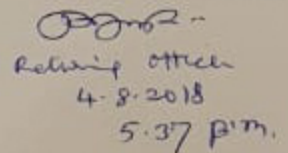 Retiring Officer
4.8.2018
5.37 p.m.